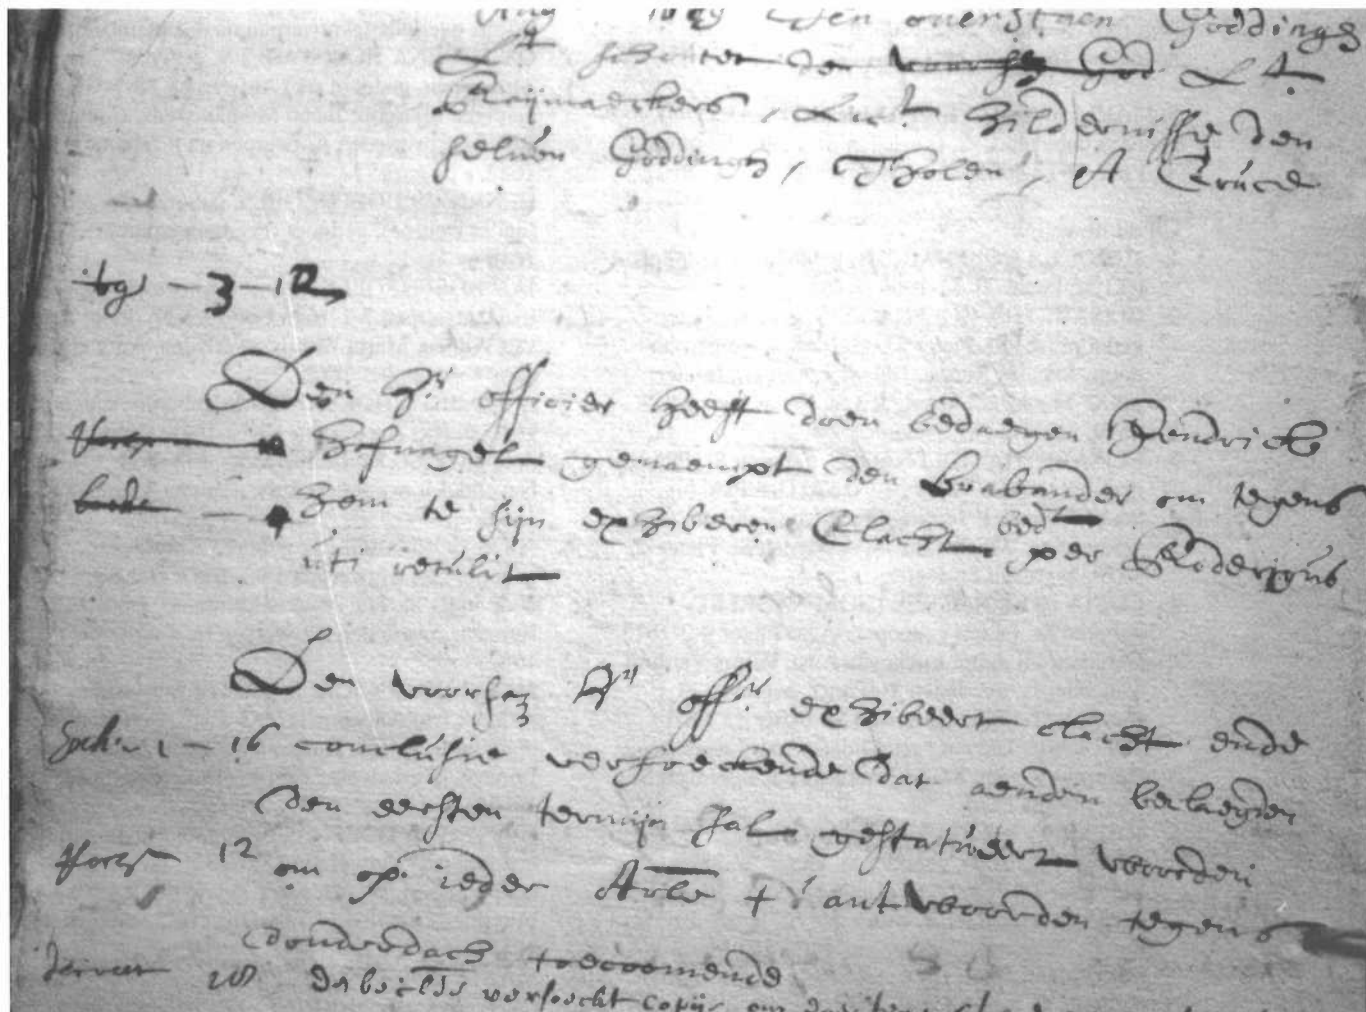 Aug 1689 Den overstaen Goddings
Lt schouter den voorsz God Lt
Raijmaeckers, Luct Hildernisse den
selven Goddingh, Tholen, A Cruce
tgs - 3 - 12
Den Hr officier heeft doen bedaegen Hendrick
Hofnagel genaempt den Brabander om tegens
hem te sijn exhiberen Clacht bedt per Roderigus
uti retulit
Den voorsz Hr offr exhibeert clacht ende
1 - 16 conclusie versoeckende dat aenden beclaegden
den eersten termijn sal gestatueert woorden
12 om op ieder Arle t'antwoorden tegens
donderdach toecoomende
18 de becl​de versoeckt copije om